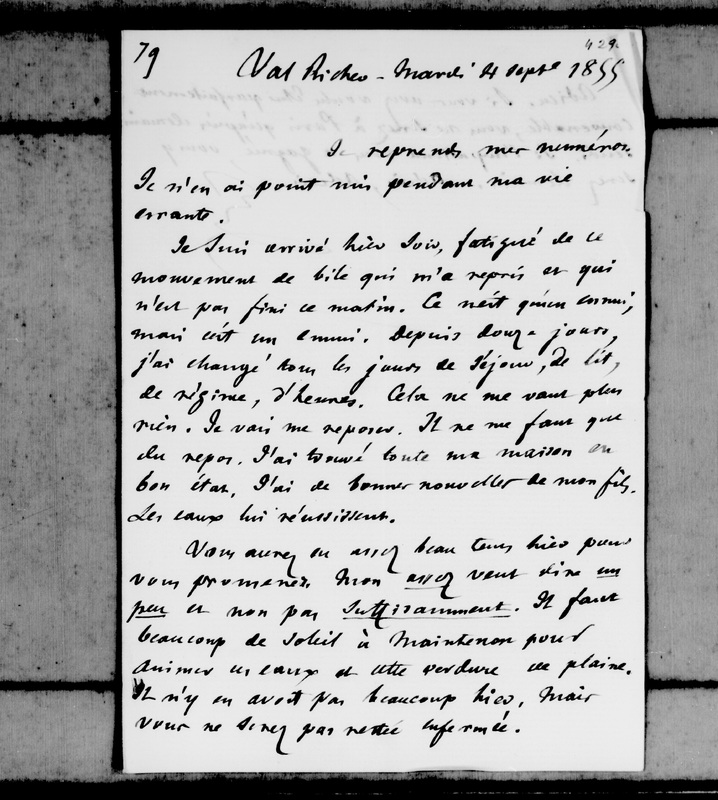 79
429.
Val Richer - Mardi 4 Septe 1855
Je reprends mes numéros.
Je n'en ai point mis pendant ma vie
errante.
Je suis arrivé hier soir, fatigué de ce
mouvement de bile qui m'a repris et qui
n'est pas fini ce matin. Ce n'est qu'un ennui,
mais c'est un ennui. Depuis douze jours,
j'ai changé tous les jours de séjour, de lit,
de régime, d'heures. Cela ne me vaut plus
rien. Je vais me reposer. Il ne me faut que
du repos. J'ai trouvé toute ma maison en
bon état. J'ai de bonnes nouvelles de mon fils.
Les eaux lui réussissent.
Vous aurez eu assez beau tems hier pour
vous promener. Mon assez veut dire un
peu et non pas suffisamment. Il faut
beaucoup de soleil à Maintenon pour
animer ces eaux et cette verdure de plaine.
Il n'y en avoit pas beaucoup hier, mais
vous ne serez pas restée enfermée.